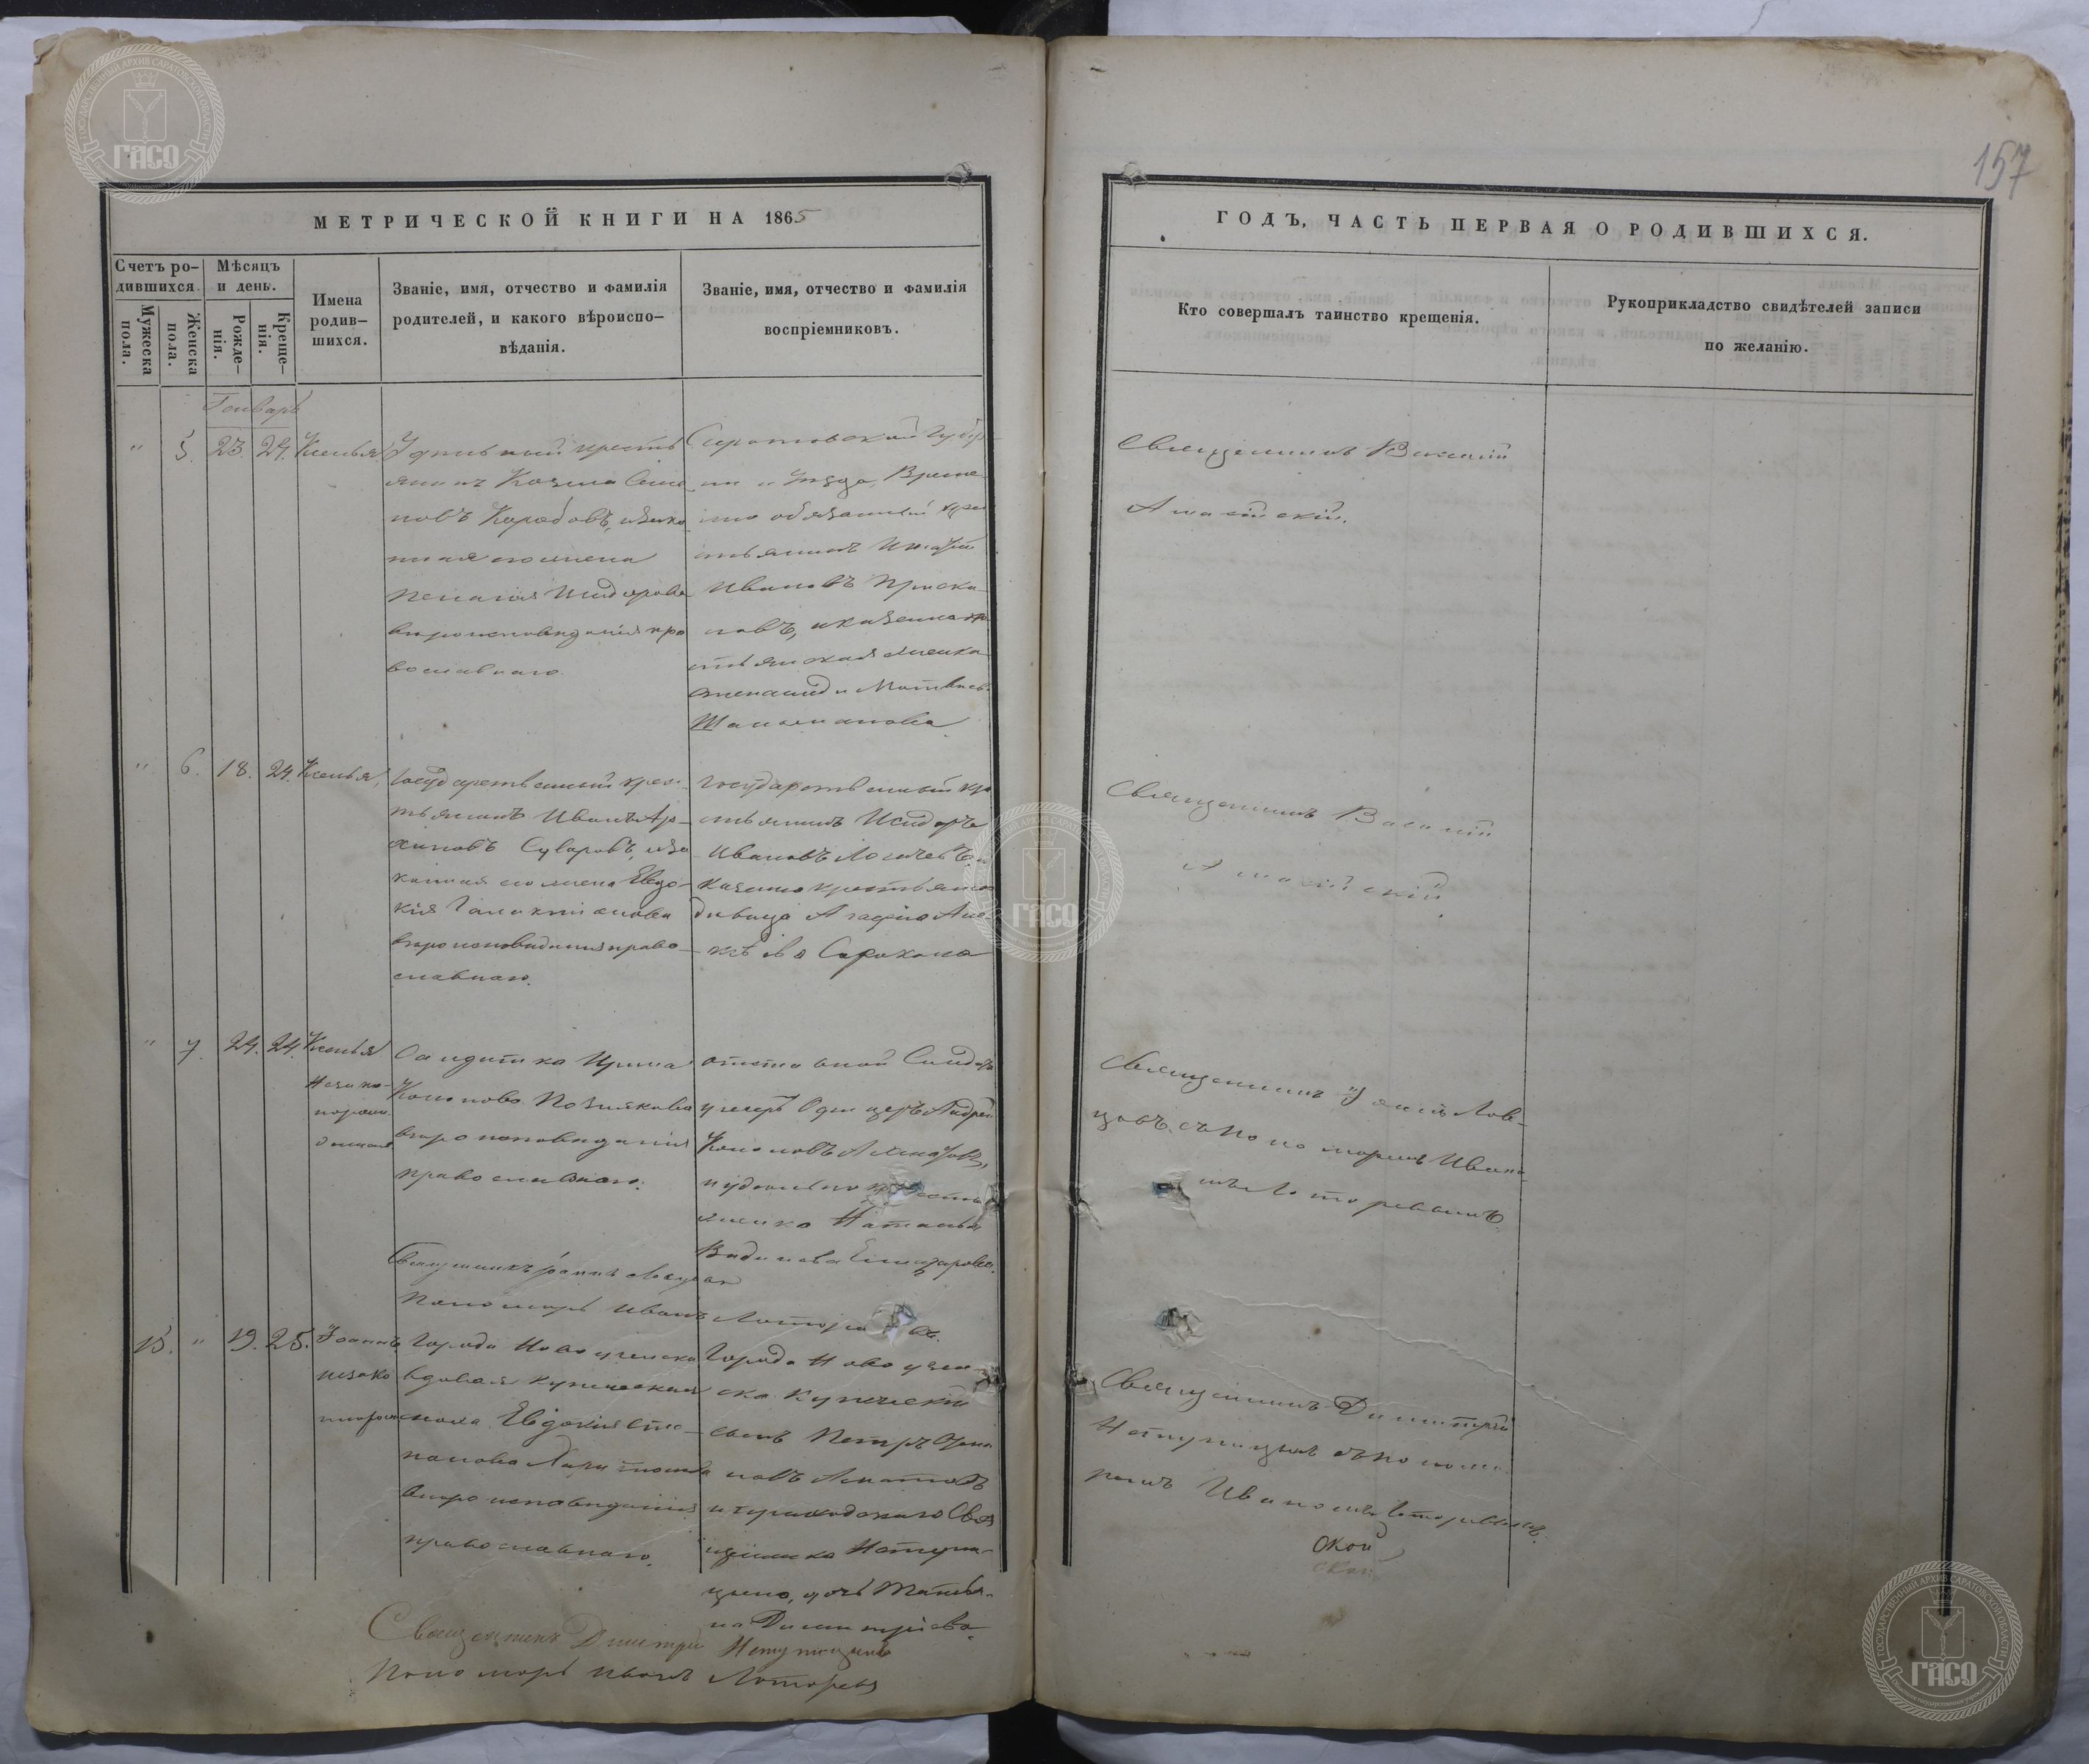 157
МЕТРИЧЕСКОЙ КНИГИ НА 1865
ГОДЪ, ЧАСТЬ ПЕРВАЯ О РОДИВШИХСЯ.
Счетъ ро-
дившихся.
Мужеска
пола.
Женска
пола.
Мѣсяцъ
и день.
Рожде-
нія.
Креще-
нія.
Имена
родив-
шихся.
Званіе, имя, отчество и фамилія
родителей, и какого вѣроиспо-
вѣданія.
Званіе, имя, отчество и фамилія
воспріемниковъ.
Кто совершалъ таинство крещенія.
Рукоприкладство свидѣтелей записи
по желанію.
Генварь
" 5. 23. 24. Ксенья
Удѣльный кресть
янинъ Козма Семе
новъ Карабовъ, и закон
ная его жена
Пелагія Исидорова
вѣроисповѣданія пра
вославнаго.
Саратовской Губер
ніи и Уѣзда, Време
нно обязанный крес
тьянинъ
Ивановъ
новъ, и казенная кре
стьянская
Матвѣева
Шальманова
Священникъ Василій
Амасійскій.
" 6. 18. 24. Ксенья,
Государственный крес-
тьянинъ Иванъ Ар-
хиповъ Суваровъ, и за
конная его жена Евдо-
кія Галактіонова
вѣроисповѣданія право-
славнаго.
Государственный кре
стьянинъ Исидоръ
Ивановъ Логачевъ, и
казенно крестьянская
дѣвица Агафія Але-
ксѣева Сорокина
Священникъ Василій
Амасійскій.
" 7. 24. 24. Ксенья
незако-
норож
денная
Солдатка Ирина
Кононова Позднякова
вѣроисповѣданія
православнаго.
отставной
унтеръ Офицеръ Андрей
Кононовъ
и удѣльно кресть
янка Наталья
Елизарова.
Священникъ Іоаннъ Лов-
цовъ съ пономаремъ Ивано
мъ Лоторевымъ
Священникъ Іоаннъ Ловцовъ
Пономарь Иванъ Лоторевъ.
15. " 19. 25. Іоаннъ,
незако
норож
Города Новоузенска
вдовая купеческая
жена Евдокія Сте-
панова Харитонова
вѣроисповѣданія
православнаго.
Города Новоузен-
ска купческій
сынъ Петръ
новъ
и приходскаго Свя
щенника Нетупи-
цына, дочь Татья-
на Димитріева
Священникъ Димитрій
Нетупицынъ съ понома-
ремъ Иваномъ Лоторевымъ.
Священникъ Димитрій Нетупицынъ
Пономарь Иванъ Лоторевъ
ГОСУДАРСТВЕННЫЙ АРХИВ САРАТОВСКОЙ ОБЛАСТИ
ГАСО